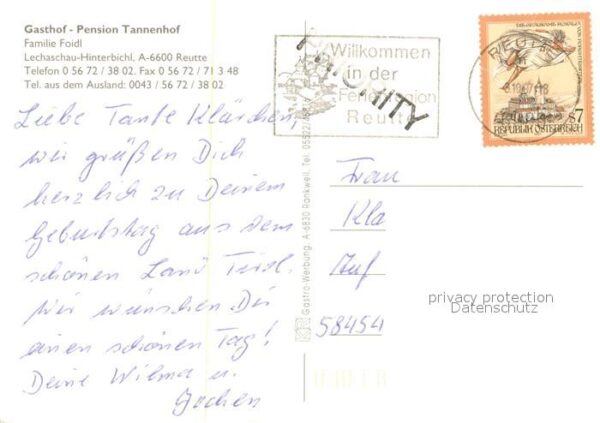 Gasthof - Pension Tannenhof
Familie Foidl
Lechaschau-Hinterbichl, A-6600 Reutte
Telefon 0 56 72 / 38 02. Fax 0 56 72 / 71 3 48
Tel. aus dem Ausland: 0043 / 56 72 / 38 02
Liebe Tante Klärchen,
wir grüßen Dich
herzlich zu Deinem
Geburtstag aus dem
schönen Land Tirol.
Wir wünschen Dir
einen schönen Tag!
Deine Wilma u.
Jochen
Gastro-Werbung, A-6830 Rankweil, Tel.
Willkommen
in der
Ferienregion
Reutte
PRIORITY
REUTTE
S7
REPUBLIK ÖSTERREICH
Frau
Kla
Auf
58454
privacy protection
Datenschutz